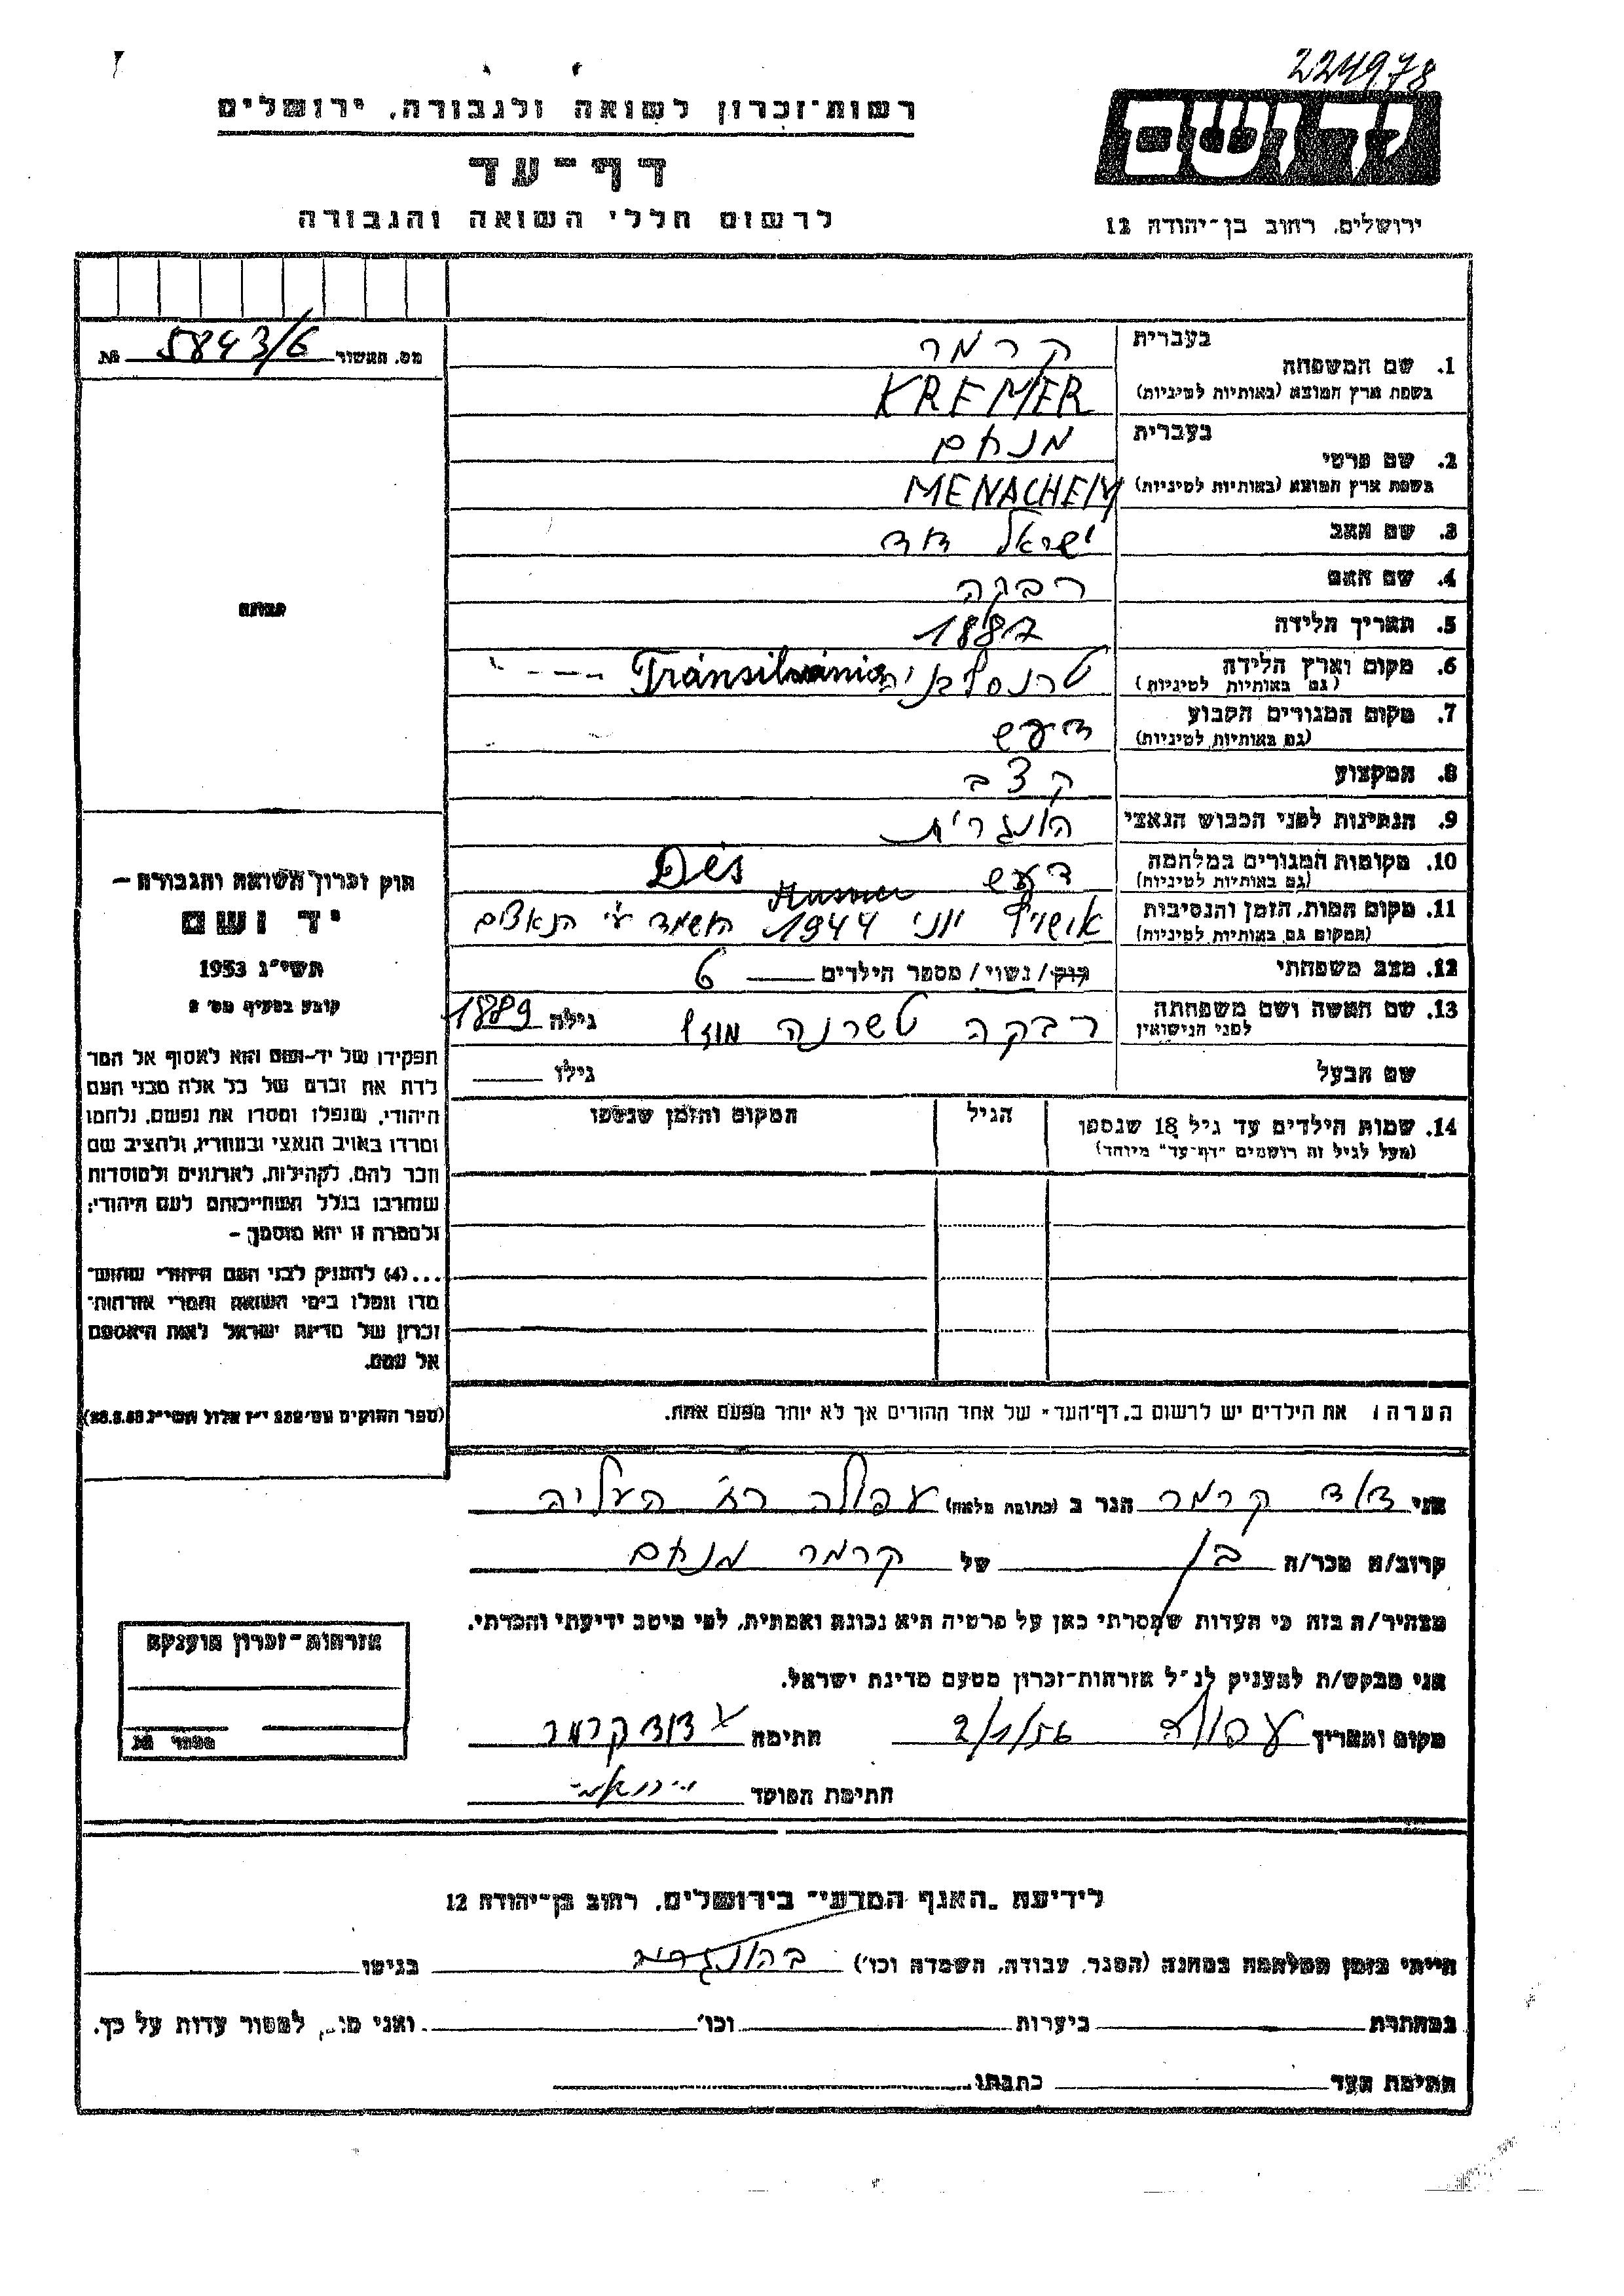 224978
רשות-זכרון לשואה ולגבורה, ירושלים
יד ושם
דף-עד
לרשום חללי השואה והגבורה
ירושלים, רחוב בן-יהודה 12
מס. האשור 5843/6 №
1. שם המשפחה
בעברית קרמר
בשפת ארץ המוצא (באותיות לטיניות) KREMER
2. שם פרטי
בעברית מנחם
בשפת ארץ המוצא (באותיות לטיניות) MENACHEM
3. שם האב ישראל דוד
4. שם האם רבקה
תמונה
5. תאריך הלידה 1887
6. מקום וארץ הלידה טרנסלבניה Transilvania
(גם באותיות לטיניות)
7. מקום המגורים הקבוע דעש
(גם באותיות לטיניות)
8. המקצוע קצב
9. הנתינות לפני הכבוש הנאצי הונגרית
10. מקומות המגורים במלחמה דעש Dés
(גם באותיות לטיניות)
11. מקום המות, הזמן והנסיבות אושויץ יוני 1944 הושמד ע"י הנאצים
(המקום גם באותיות לטיניות)
12. מצב משפחתי רוק/ נשוי/ מספר הילדים 6
13. שם האשה ושם משפחתה רבקה גילה 1889
לפני הנישואין
שם הבעל גילו
14. שמות הילדים עד גיל 18 שנספו הגיל המקום והזמן שנספו
(מעל לגיל זה רושמים "דף-עד" מיוחד)
חוק זכרון השואה והגבורה –
יד ושם
תשי"ג 1953
קובע בסעיף מס' 2
תפקידו של יד-ושם הוא לאסוף אל המו
לדת את זכרם של כל אלה מבני העם
היהודי, שנפלו ומסרו את נפשם, נלחמו
ומרדו באויב הנאצי ובעוזריו, ולהציב שם
וזכר להם, לקהילות, לארגונים ולמוסדות
שנחרבו בגלל השתייכותם לעם היהודי;
ולמטרה זו יהא מוסמך –
...(4) להעניק לבני העם היהודי שהוש
מדו ונפלו בימי השואה והמרי אזרחות-
זכרון של מדינת ישראל לאות היאספם
אל עמם.
(ספר החוקים מס' 132 י"ז אלול תשי"ג 28.8.53)
הערה: את הילדים יש לרשום ב"דף-העד" של אחד ההורים אך לא יותר מפעם אחת.
אני דוד קרמר הגר ב (כתובת מלאה) עפולה רח העליה
קרוב/ה מכר/ה בן של קרמר מנחם
מצהיר/ה בזה כי העדות שמסרתי כאן על פרטיה היא נכונה ואמתית, לפי מיטב ידיעתי והכרתי.
אני מבקש/ת להעניק לנ"ל אזרחות-זכרון מטעם מדינת ישראל.
מקום ותאריך עפולה 2/1/56 חתימה דוד קרמר
חתימת הפוקד
אזרחות-זכרון הוענקה
מספר №
לידיעת "האגף המדעי" בירושלים, רחוב בן-יהודה 12
הייתי בזמן המלחמה במחנה (הסגר, עבודה, השמדה וכו') בהונגריה בגיטו
במחתרת ביערות וכו' ואני למסור עדות על כך.
חתימת העד כתבתו